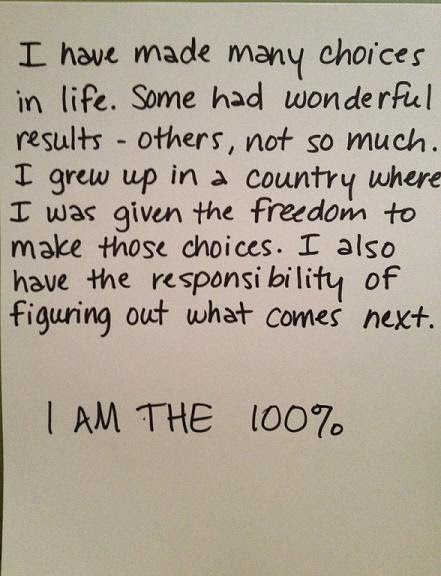 I have made many choices
in life. Some had wonderful
results - others, not so much.
I grew up in a country where
I was given the freedom to
make those choices. I also
have the responsibility of
figuring out what comes next.
I AM THE 100%